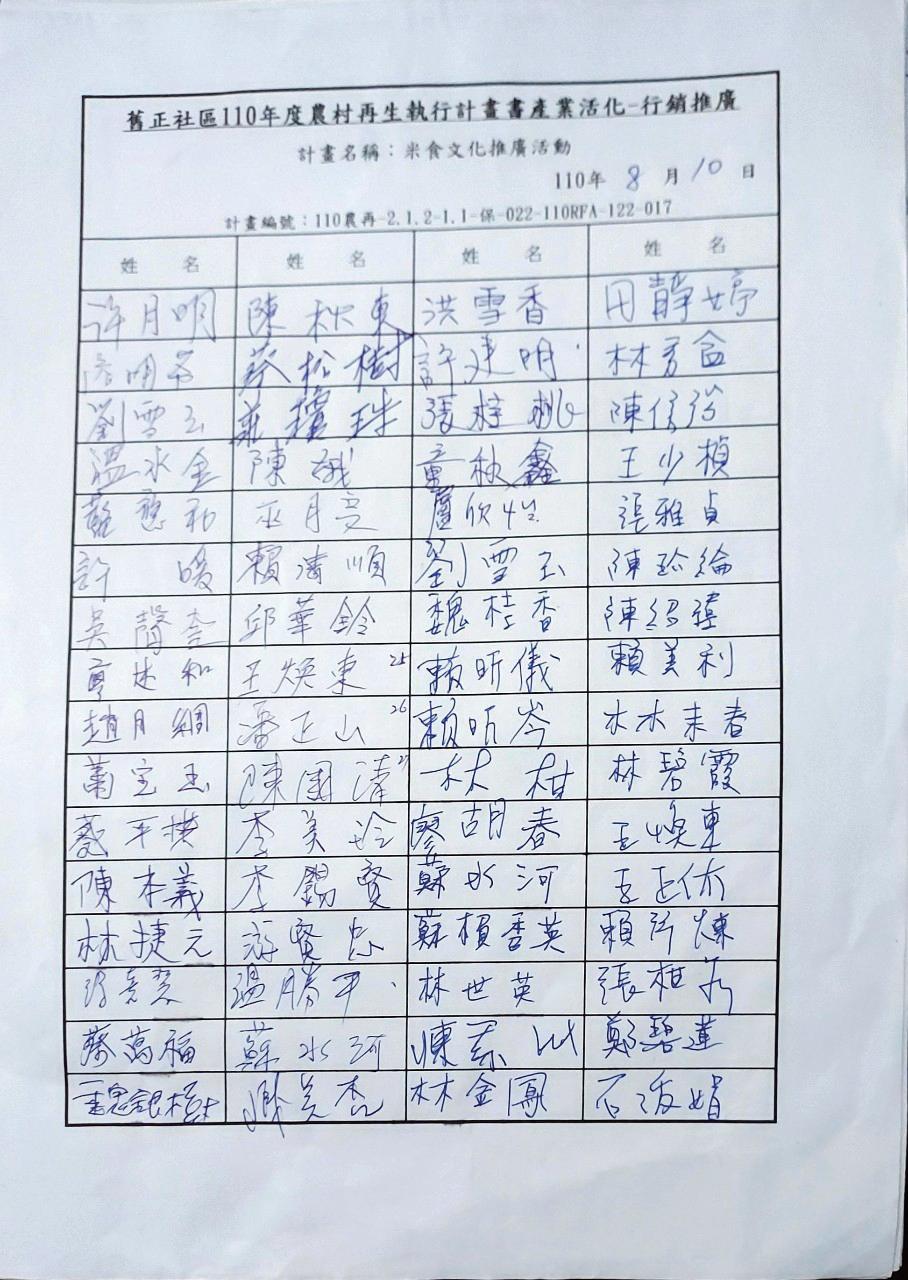 舊正社區110年度農村再生執行計畫書產業活化-行銷推廣
計畫名稱：米食文化推廣活動
110年 8 月 10 日
計畫編號：110農再-2.1.2-1.1-保-022-110RFA-122-017
姓 名 姓 名 姓 名 姓 名
許月明 陳秋東 洪雪香 田靜婷
蔡松樹 許建明 林
劉雪玉 張 桃 陳信
溫水金 陳 童秋鑫 王少楨
巫月 盧欣 張雅貞
許 賴 順 劉雪玉 陳 綸
吳 邱華鈴 魏桂香 陳紹
和 王煥東 25 賴昕儀 賴美利
趙月綢 潘正山 26 賴昕岑 林 春
蕭 玉 陳國清 27 林 柑 林碧霞
平 李美玲 廖胡春 王煥東
陳本義 李錫賢 蘇水河 王正
林捷元 游賢忠 蘇賴香英 賴 煉
溫勝平 林世英 張
蔡萬福 蘇水河 陳 鄭碧蓮
魏銀 美 林金鳳 石 娟